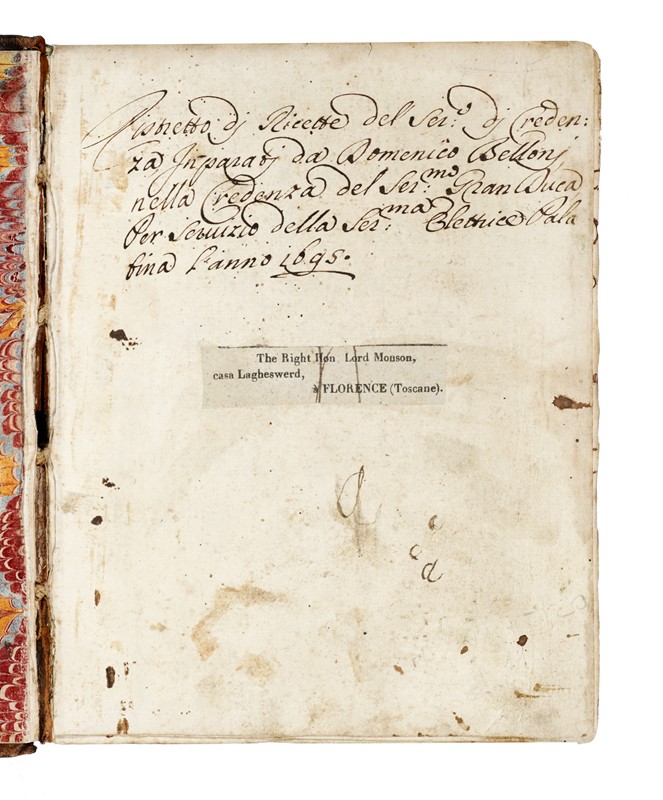 Ristretto dj Ricette del Ser:º dj Creden:
za Jnparatj da Domenico Bellonj
nella Credenza del Ser:mo Gran Duca
Per Seruizio della Ser:ma Elettrice Pala
tina L'anno 1695.
The Right Hon Lord Monson,
casa Lagheswerd,
à FLORENCE (Toscane).
a
c
c
a